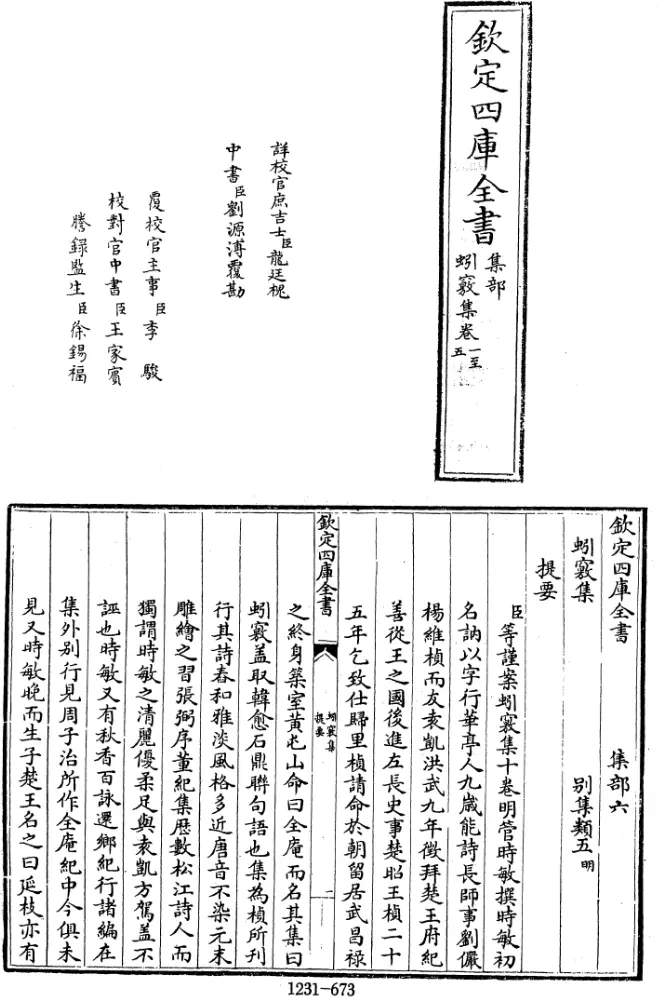 欽定四庫全書
集部
蚓竅集卷一至五
詳校官庶吉士臣龍廷槐
中書臣劉源溥覆勘
覆校官主事臣李駿
校對官中書臣王家賓
謄錄監生臣徐錫福
欽定四庫全書 集部六
蚓竅集 别集類五明
提要
臣等謹案蚓竅集十卷明管時敏撰時敏初
名訥以字行華亭人九歲能詩長師事劉儼
楊維楨而友袁凱洪武九年徵拜楚王府紀
善從王之國後進左長史事楚昭王楨二十
五年乞致仕歸里楨請命於朝留居武昌祿
欽定四庫全書
蚓竅集
提要
二
之終身築室黄屯山命曰全庵而名其集曰
蚓竅盖取韓愈石鼎聯句語也集為楨所刊
行其詩春和雅淡風格多近唐音不染元末
雕繪之習張弼序董紀集歷數松江詩人而
獨謂時敏之清麗優柔足與袁凱方駕盖不
誣也時敏又有秋香百詠還鄉紀行諸編在
集外别行見周子治所作全庵記中今俱未
見又時敏晚而生子楚王名之曰延枝亦有
1231-673